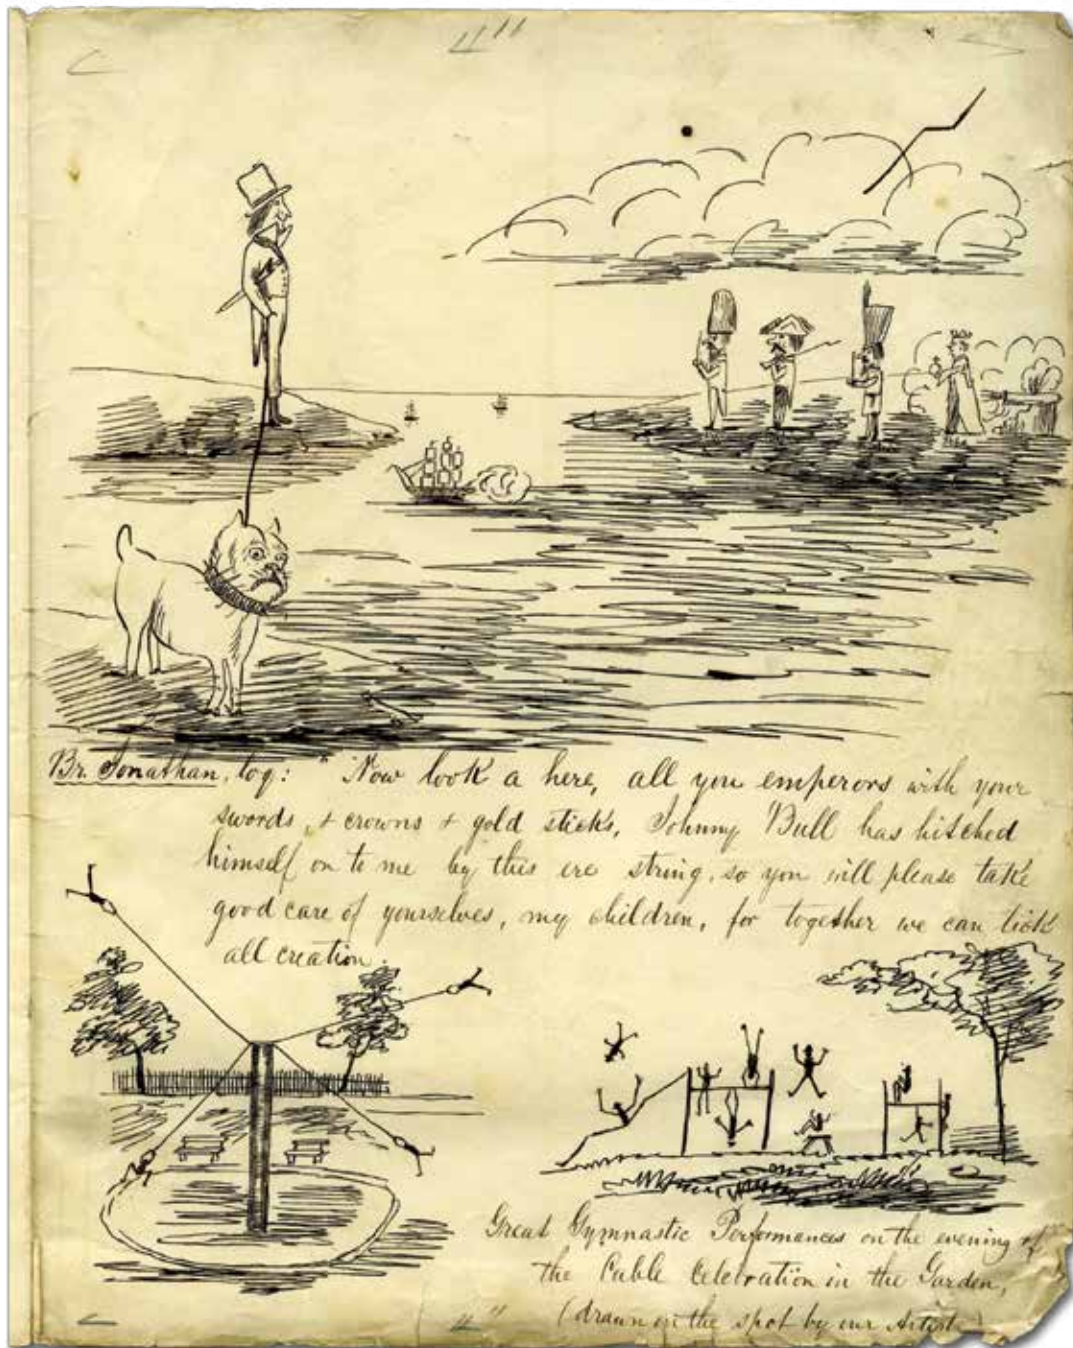 Br. Jonathan, loq: "Now look a here, all you emperors with your
swords, + crowns + gold sticks, Johnny Bull has hitched
himself on to me by this ere string, so you will please take
good care of yourselves, my children, for together we can lick
all creation.
Great Gymnastic Performances on the evening of
the Cable Celebration in the Garden,
(drawn on the spot by our Artist)